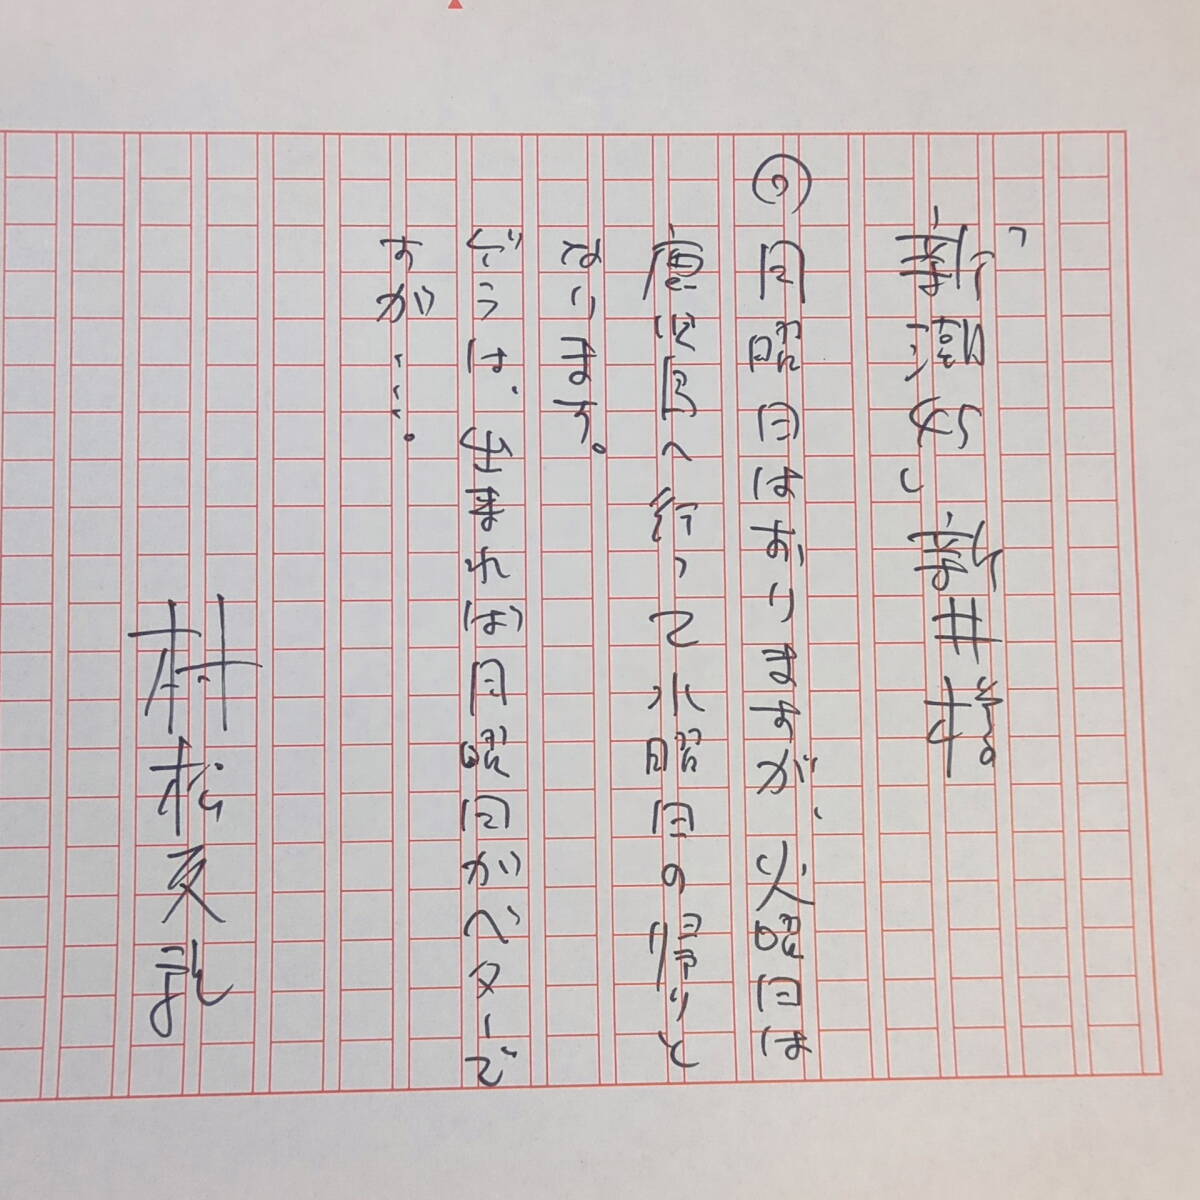 「新潮45」 新井様
の 月曜日はおりますが、火曜日は
鹿児島へ行って水曜日の帰りと
なります。
ぶうは、出来れば月曜日がベターで
すが……。
村松友視